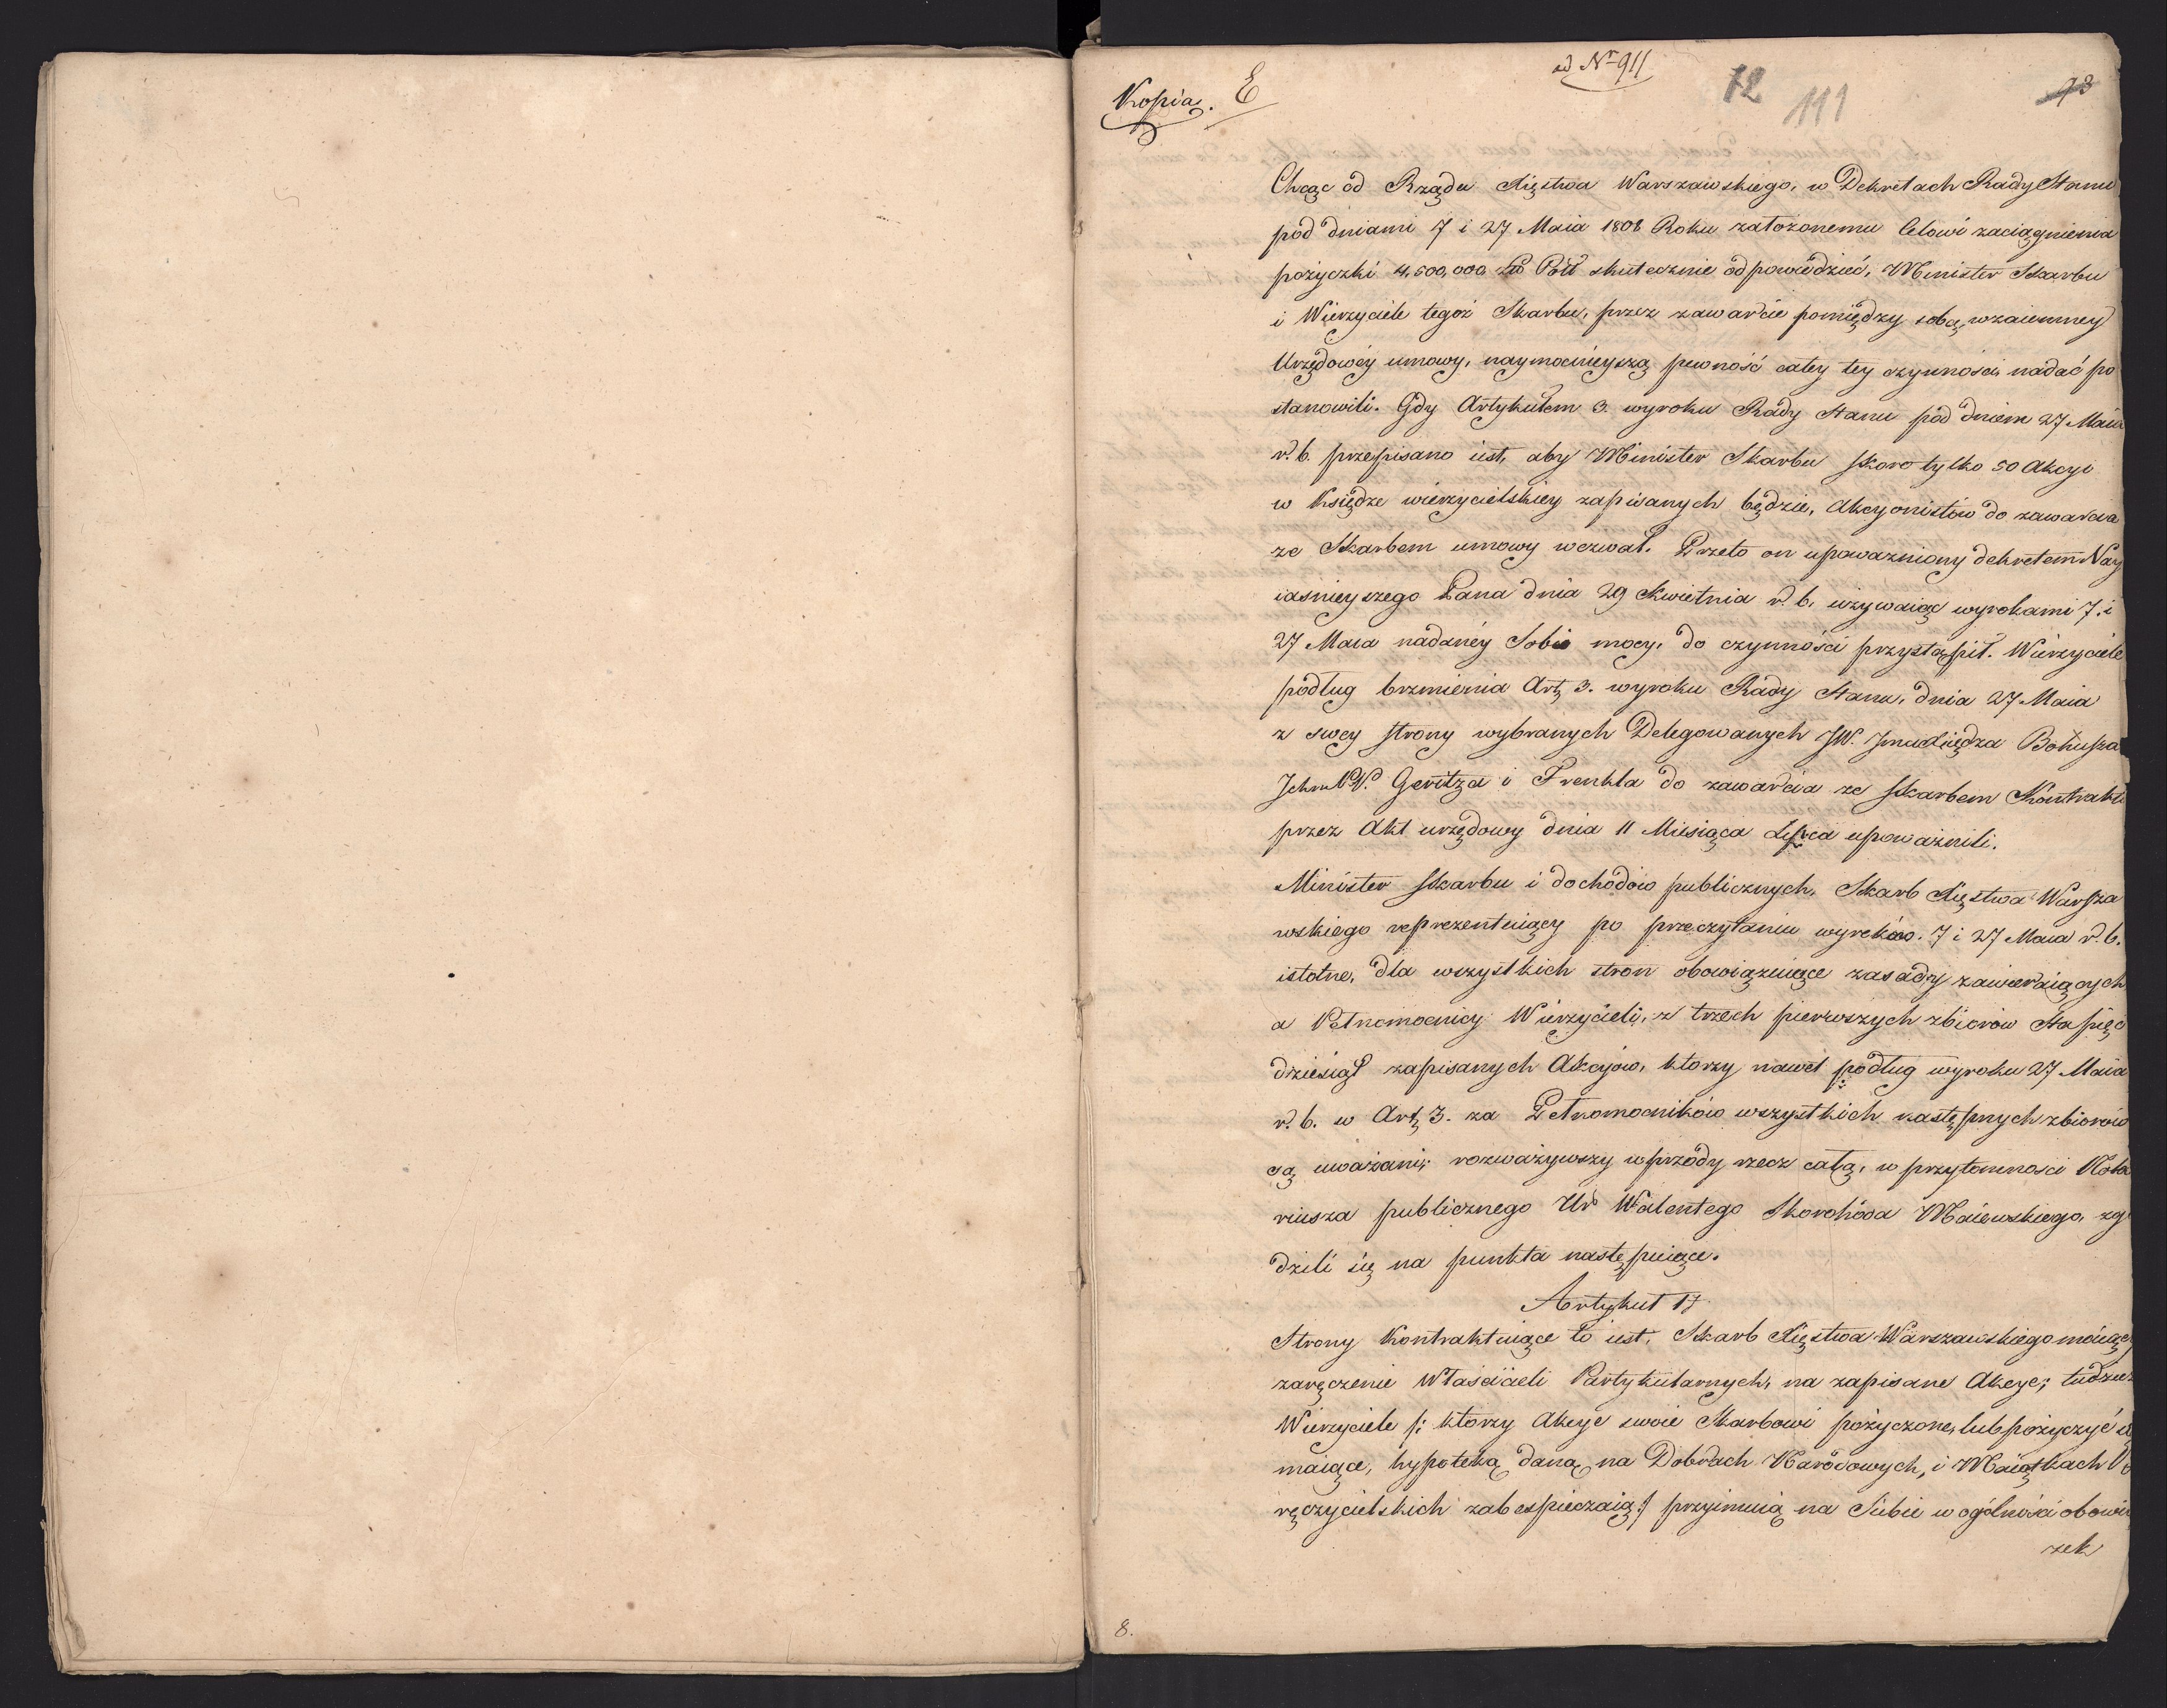 ad Nr 911
Kopia. E
72 111 73
Chcąc od Rządu Xięstwa Warszawskiego, w Dekretach Rady Stanu
pod dniami 7 i 27 Maia 1808 Roku założonemu Celowi zaciągnienia
pożyczki 4,500,000 Zło Pol skutecznie odpowiedzieć, Minister Skarbu
i Wierzyciele tegoż Skarbu, przez zawarcie pomiędzy sobą wzaiemney
Urzędowéy umowy, naymocnieyszą pewność całey tey czynności nadać po
stanowili. Gdy Artykułem 3. wyroku Rady Stanu pod dniem 27 Maia
r. b. przepisano iest, aby Minister Skarbu skoro tylko 50 Akcyi
w Księdze wierzycielskiey zapisanych będzie, Akcyonistów do zawarcia
ze Skarbem umowy wezwał. Przeto on upoważniony dekretem Nay
iaśnieyszego Pana dnia 29 Kwietnia r. b. używaiąc wyrokami 7. i
27 Maia nadanéy Sobie mocy, do czynności przystąpił. Wierzyciele
podług brzmienia Art. 3. wyroku Rady Stanu, dnia 27 Maia
z swey strony wybranych Delegowanych JW. Jmci Xiędza Bohusza
Ichm WW. Geritza i Frenkla do zawarcia ze Skarbem Kontraktu
przez Akt urzędowy dnia 11 Miesiąca Lipca upoważnili.
Minister Skarbu i dochodów publicznych, Skarb Xięstwa Warsza
wskiego reprezentuiący po przeczytaniu wyroków. 7 i 27 Maia r. b.
istotne, dla wszystkich stron obowiązuiące zasady zawieraiących
a Pełnomocnicy Wierzycieli, z trzech pierwszych zbiorów Sta pięć
dziesiąt zapisanych Akcyów, ktorzy nawet podług wyroku 27 Maia
r. b. w Art. 3. za Pełnomocników wszystkich następnych zbiorów
są uważani; rozważywszy wprzódy rzecz całą, w przytomności Nota
riusza publicznego Ur Walentego Skorohoda Maiewskiego, zgo
dzili się na punkta następuiące.
Artykuł 1y
Strony Kontraktuiące to iest, Skarb Xięstwa Warszawskiego maiący
zaręczenie Właścicieli Partykularnych, na zapisane Akcye; tudzież
Wierzyciele /: ktorzy Akcye swoie Skarbowi pożyczone, lub pożyczyć się
maiące, hypoteką daną na Dobrach Narodowych, i Maiątkach Po
ręczycielskich zabespieczaią :/ przyimuią na Siebie w ogólności obowią
zek
8.